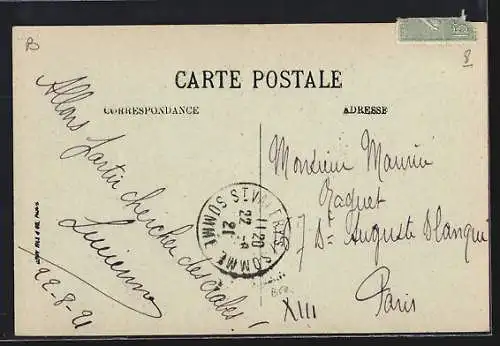 B
8
CARTE POSTALE
CORRESPONDANCE
ADRESSE
Allons partir chercher des crabes !
Lucienne
22-8-21
ST VALERY-S-SOMME
11 20
22 -8
21
SOMME
Monsieur Maurice
Raquet
7 Bd Auguste Blanqui
Paris
XIII